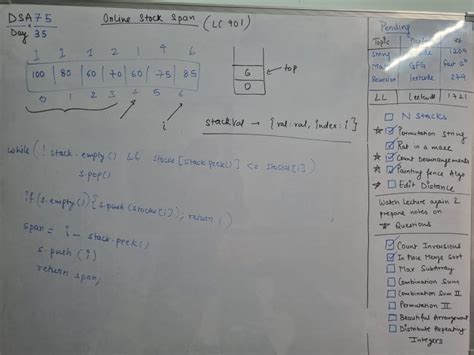 DSA75
Day 35
Online Stock Span (LC 901)
1 1 1 2 1 4 6
100 80 60 70 60 75 85
0 1 2 3 4 5 6
i
6
0
top
stackVal → {val: val, index: i}
while(! stack.empty() && stocks[stack.peek()] <= stocks[i])
s.pop()
if(s.empty()){s.push(stocks[i]), return 1}
span = i - stack.peek()
s.push(i)
return span;
Pending
Topic
String 1209
GFG
Recursion leetcode
LL Leetcode 1721
N Stacks
Permutation String
Rat in a maze
Count Dearrangements
Painting fence Algo
Edit Distance
Watch lecture again &
prepare notes on
Questions
Count Inversions
In Place Merge Sort
Max Subarray
Combination Sum
Combination Sum II
Permutation II
Beautiful Arrangement
Distribute Repeating
Integers